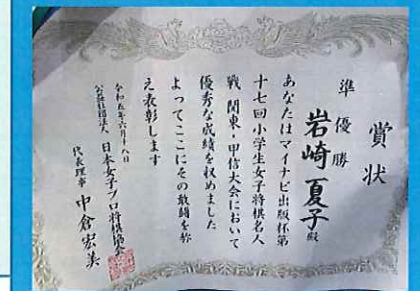 賞状
準優勝
岩崎夏子殿
あなたはマイナビ出版杯第
十七回小学生女子将棋名人
戦 関東・甲信大会において
優秀な成績を収めました
よってここにその敢闘を称
え表彰します
令和五年六月十八日
公益社団法人 日本女子プロ将棋協会
代表理事 中倉宏美